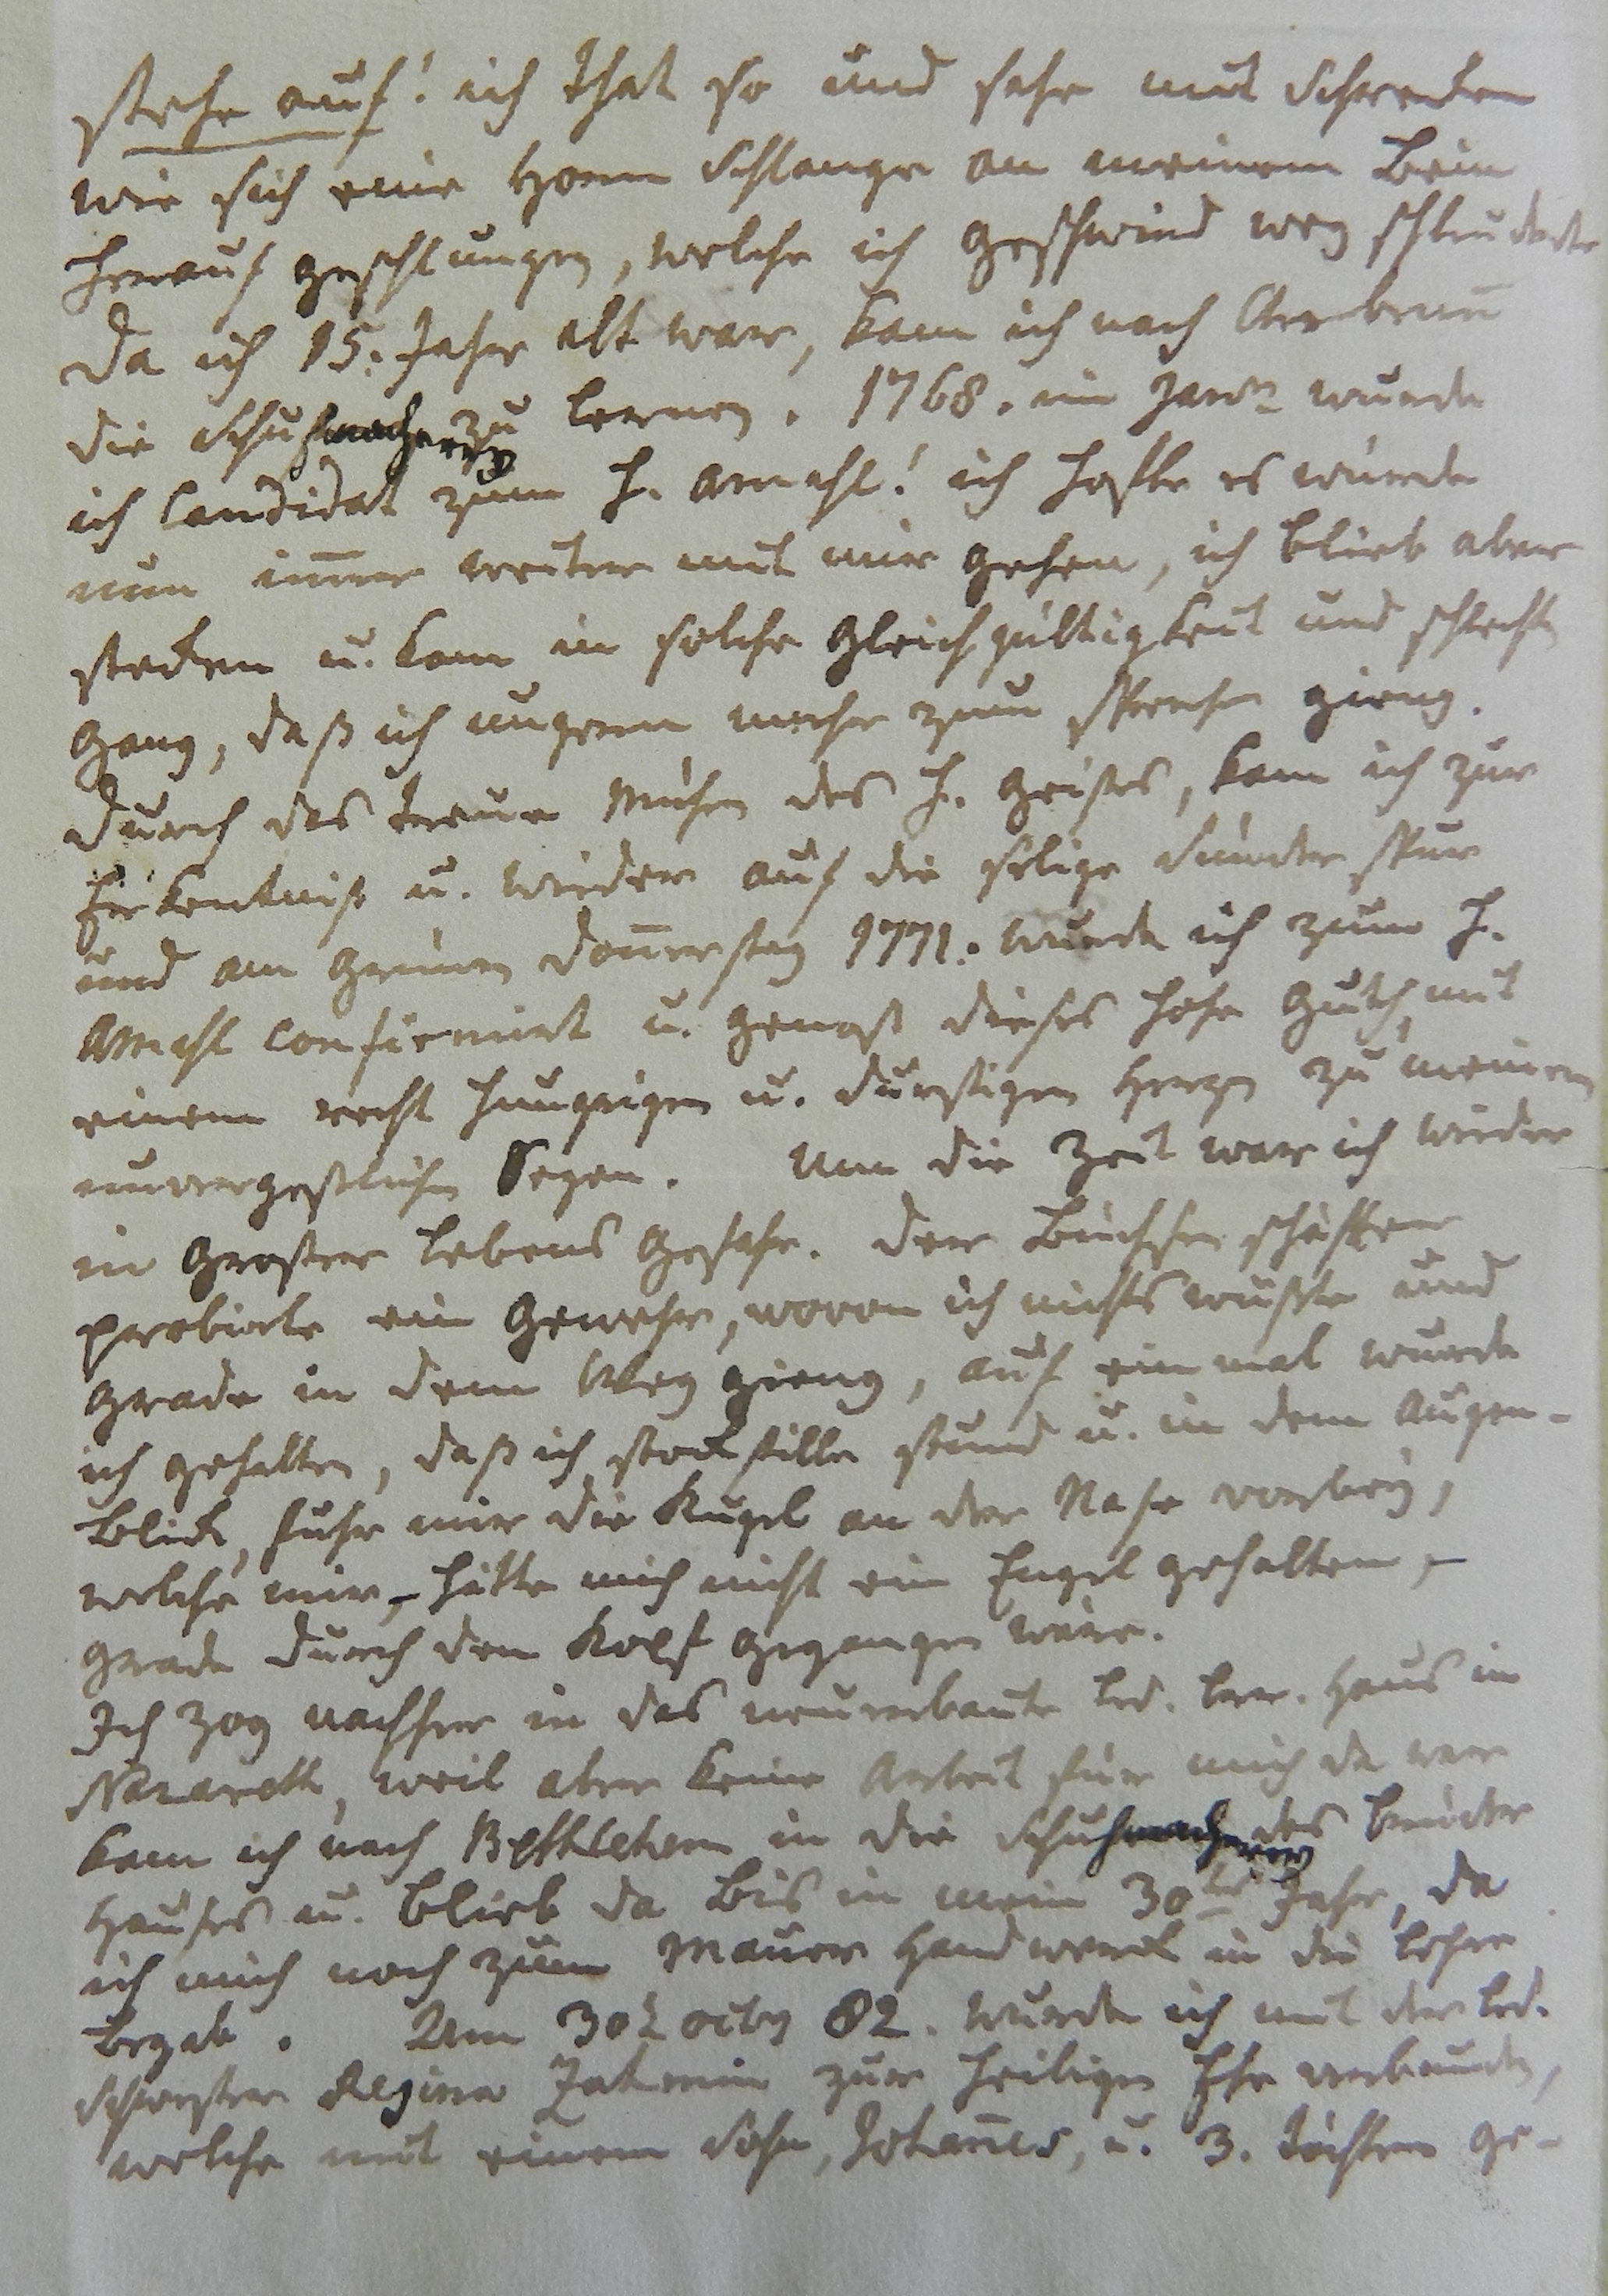 stehe auf! ich that so und sahe mit Schrecken
wie sich eine Horn Schlange an meinem Bein
herauf geschlungen, welche ich geschwind weg schleuderte
Da ich 15. Jahr alt war, kam ich nach
die Schuhmacherey zu lernen. 1768. im Janr wurde
ich Candidat zum H. Amahl! ich hofte es würde
nun im̄er weiter mit mir gehen, ich blieb aber
stecken u. kam in solche Gleichgültigkeit und schlechten
Gang, daß ich ungern mehr zum Sprechen gieng.
Durch das treue Mühen des H. Geistes, kam ich zur
Erkentniß u. wieder auf die selige Sünder Spur
und am Grünen Don̄erstag 1771. wurde ich zum H.
Amahl confirmirt u. genoß dieses hohe Guth, mit
einem recht hungrigen u. durstigen Herzen zu meinem
unvergeßlichen Segen. Um die Zeit war ich wieder
in großer Lebens Gefahr. Der Büchsen schäfter
probirte ein Gewehr, wovon ich nichts wußte und
grade in dem Weg gieng, auf ein mal wurde
ich gehalten, daß ich stockstille stund u. in dem Augen-
blick, fuhr mir die Kugel an der Nase vorbey,
welche mir, – hätte mich nicht ein Engel gehalten, –
grade durch den Kopf gegangen wäre.
Ich zog nachher in das neuerbaute led. Brr. Haus in
Nazareth, weil aber keine Arbeit für mich da war
kam ich nach Bethlehem in die Schuhmacherey des Brüder
Hauses u. blieb da bis in mein 30tes Jahr, da
ich mich noch zum Maurer Handwerck in die Lehre
begab. Am 30t octbr 82. wurde ich mit der led.
Schwester Regina zur heiligen Ehe verbunden,
welche mit einem Sohn, Johan̄es, u. 3. Töchtern ge-